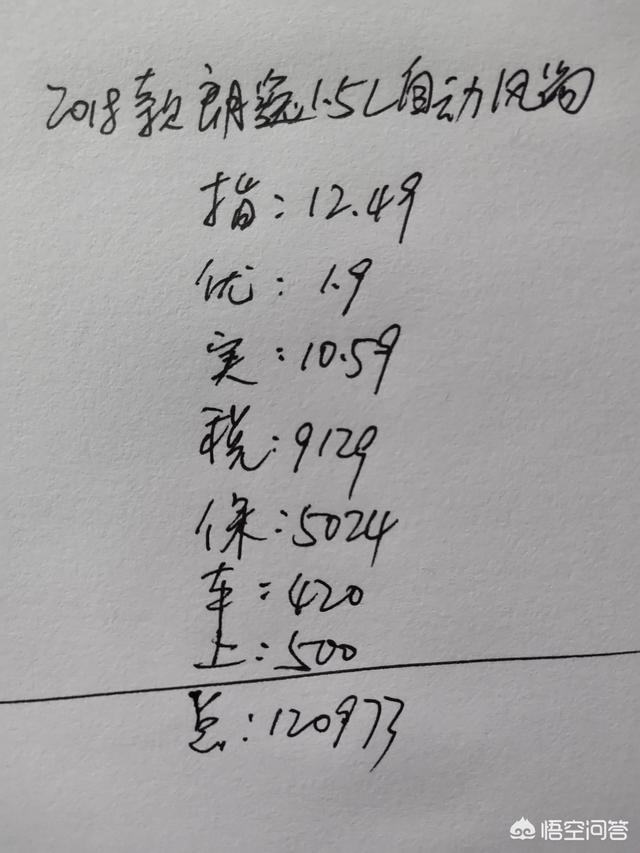 2018款朗逸1.5L自动风尚
指：12.49
优：1.9
实：10.59
税：9129
保：5024
车：420
上：500
总：120973
悟空问答